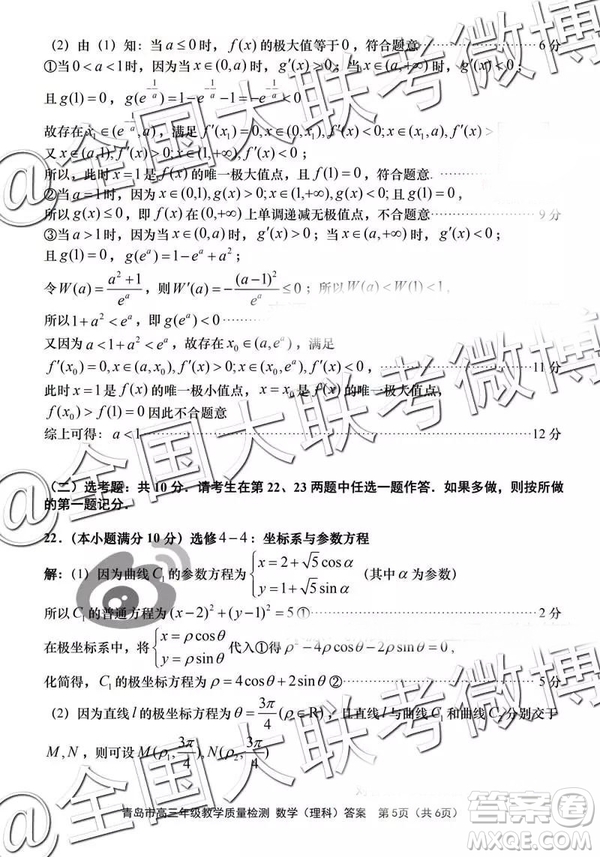 (2) 由 (1) 知: 当 a ≤ 0 时, f(x) 的极大值等于 0, 符合题意 6 分
① 当 0 < a < 1 时, 因为当 x∈(0,a) 时, g′(x) > 0; 当 x∈(a,+∞) 时, g′(x) < 0;
且 g(1) = 0, g(e^{-1/a}) = 1 − e^{-1/a} − 1 < 0
故存在 x₁∈(e^{-1/a},a), 满足 f′(x₁) = 0, x∈(0,x₁), f′(x) < 0; x∈(x₁,a), f′(x) > 0
又 x∈(a,1), f′(x) > 0; x∈(1,+∞), f′(x) < 0;
所以, 此时 x = 1 是 f(x) 的唯一极大值点, 且 f(1) = 0, 符合题意
② 当 a = 1 时, 因为当 x∈(0,1), g′(x) > 0; x∈(1,+∞) 时 g′(x) < 0; g(1) = 0
所以 g(x) ≤ 0, 即 f(x) 在 (0,+∞) 上单调递减无极值点, 不合题意 9 分
③ 当 a > 1 时, 因为当 x∈(0,a) 时, g′(x) > 0; 当 x∈(a,+∞) 时, g′(x) < 0;
且 g(1) = 0, g(e^a) = 1 − e^a + a²;
令 W(a) = (a²+1)/e^a, 则 W′(a) = −(a−1)²/e^a; 所以 W(a) < W(1) =
所以 1 + a² < e^a, 即 g(e^a) < 0
又因为 a < 1 + a² < e^a, 故存在 x₀∈(a,e^a), 满足
f′(x₀) = 0, x∈(a,x₀), f′(x) > 0; x∈(x₀,+∞), f′(x) < 0 11 分
此时 x = 1 是 f(x) 的唯一极小值点, x = x₀ 是 f(x) 的唯一极大值点,
f(x₀) > f(1) = 0 因此不合题意
综上可得: a < 1 12 分
(二) 选考题: 共 10 分. 请考生在第 22、23 两题中任选一题作答. 如果多做, 则按所做
的第一题记分.
22. (本小题满分 10 分) 选修 4−4: 坐标系与参数方程
解: (1) 因为曲线 C₁ 的参数方程为 { x = 2 + √5 cos α
y = 1 + √5 sin α (其中 α 为参数)
所以 C₁ 的普通方程为 (x−2)² + (y−1)² = 5 ① 2 分
在极坐标系中, 将 { x = ρ cos θ
y = ρ sin θ 代入①得 ρ² − 4ρ cos θ − 2ρ sin θ = 0
化简得, C₁ 的极坐标方程为 ρ = 4 cos θ + 2 sin θ ② 5 分
(2) 因为直线 l 的极坐标方程为 θ = 3π/4 (ρ∈R), 且直线 l 与曲线 C₁ 和曲线 C₂ 分别交于
M, N, 则可设 M(ρ₁, 3π/4), N(ρ₂, 3π/4)
青岛市高三年级教学质量检测 数学 (理科) 答案 第 5 页 (共 6 页)
@全国大联考微博
@全国大联考微博
@全国大联考微博